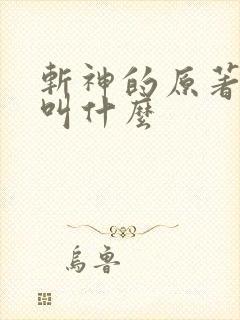 斬神的原著
叫什麼
烏魯